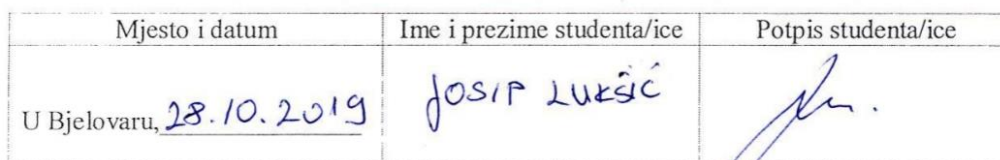 Mjesto i datum
Ime i prezime studenta/ice
Potpis studenta/ice
U Bjelovaru, 28.10.2019
JOSIP LUKŠIĆ